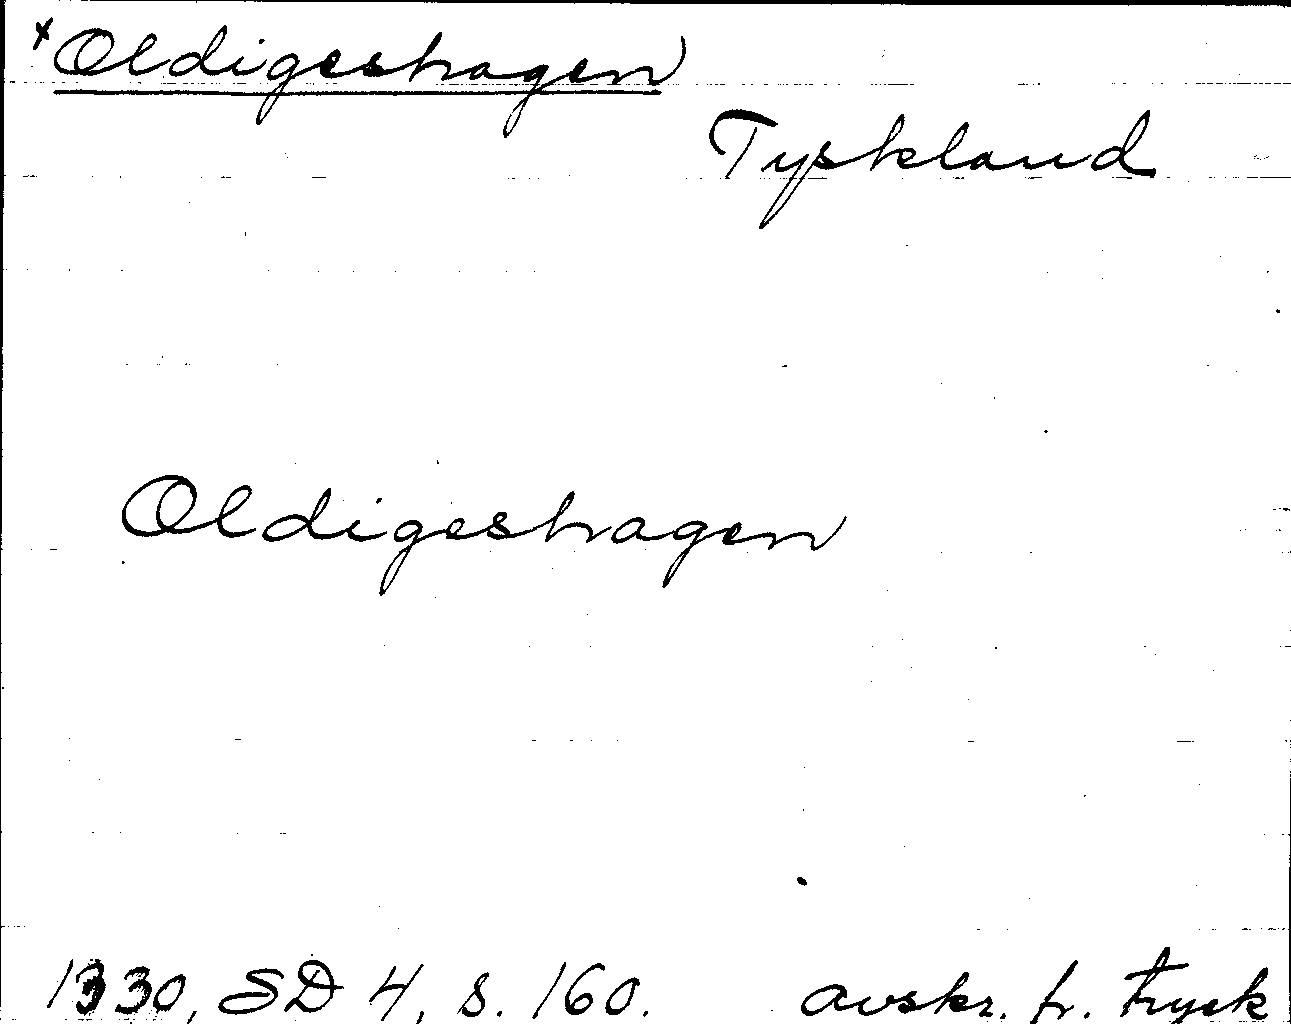 x Oldigeshagen
Tyskland
Oldigeshagen
1330, SD 4, s. 160. avskr. fr. tryck